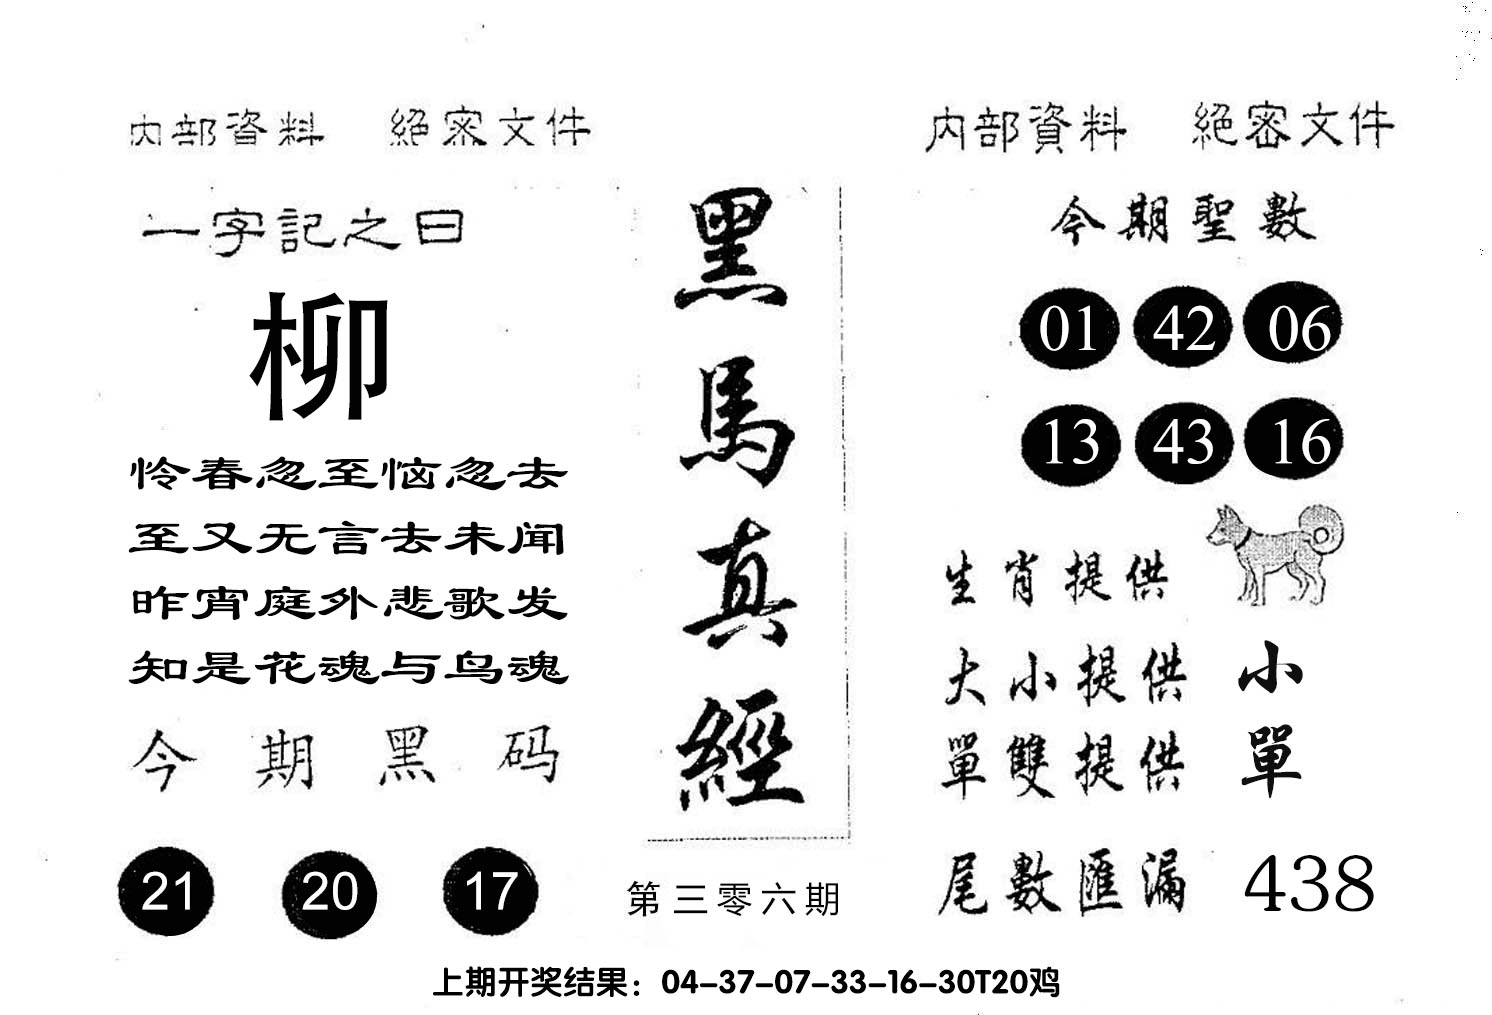 内部資料 絕密文件
一字記之曰
柳
怜春忽至恼忽去
至又无言去未闻
昨宵庭外悲歌发
知是花魂与鸟魂
今期黑码
21 20 17
黑馬真經
第三零六期
内部資料 絕密文件
今期聖數
01 42 06
13 43 16
生肖提供
大小提供 小
單雙提供 單
尾數匯漏 438
上期开奖结果：04-37-07-33-16-30T20鸡